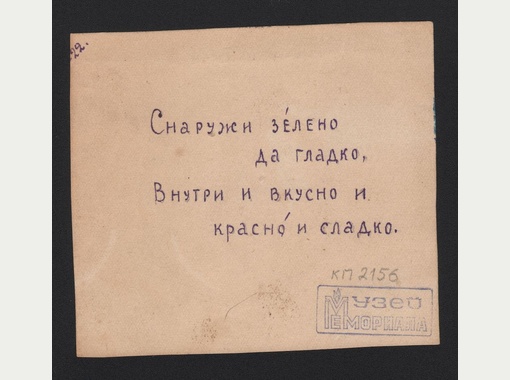 22.
Снаружи зéлено
да гладко,
Внутри и вкусно и
краснó и сладко.
КП 2156
Музей
Мемориала